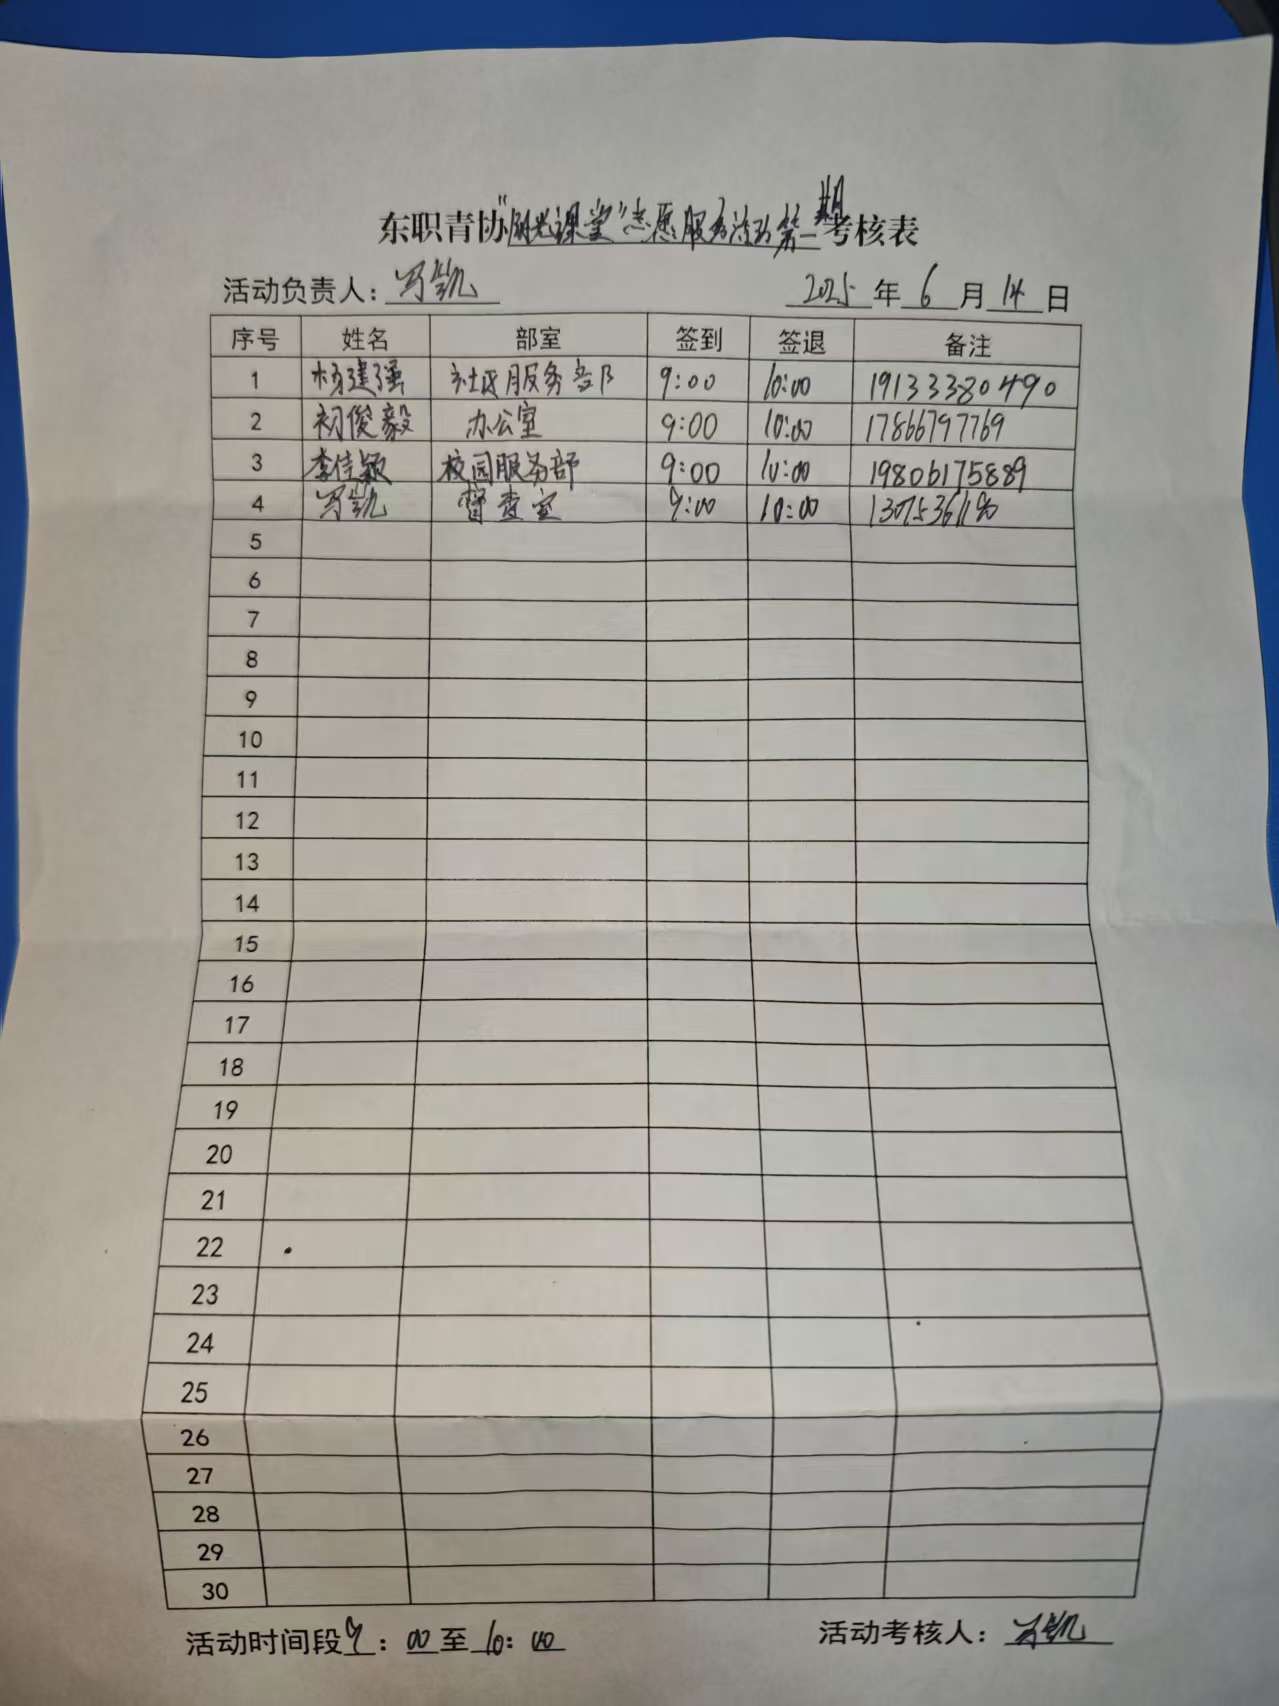 东职青协“阳光课堂”志愿服务活动第一期考核表
活动负责人：冯凯 2025年6月14日
序号 姓名 部室 签到 签退 备注
1 杨建强 社区服务部 9:00 10:00 19133380490
2 初俊毅 办公室 9:00 10:00 17866797769
3 李佳颖 校园服务部 9:00 10:00 19806175889
4 冯凯 督查室 9:00 10:00
5
6
7
8
9
10
11
12
13
14
15
16
17
18
19
20
21
22
23
24
25
26
27
28
29
30
活动时间段9：00至10：00 活动考核人：冯凯